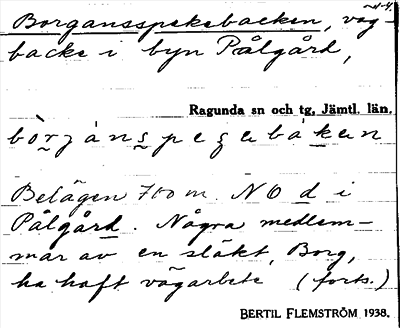 Borgansspekebacken, väg-
backe i byn Pålgård,
Ragunda sn och tg, Jämtl. län.
Belägen 700 m. NO d i
Pålgård. Några medlem-
mar av en släkt, Borg,
ha haft vägarbete (forts.)
BERTIL FLEMSTRÖM 1938.